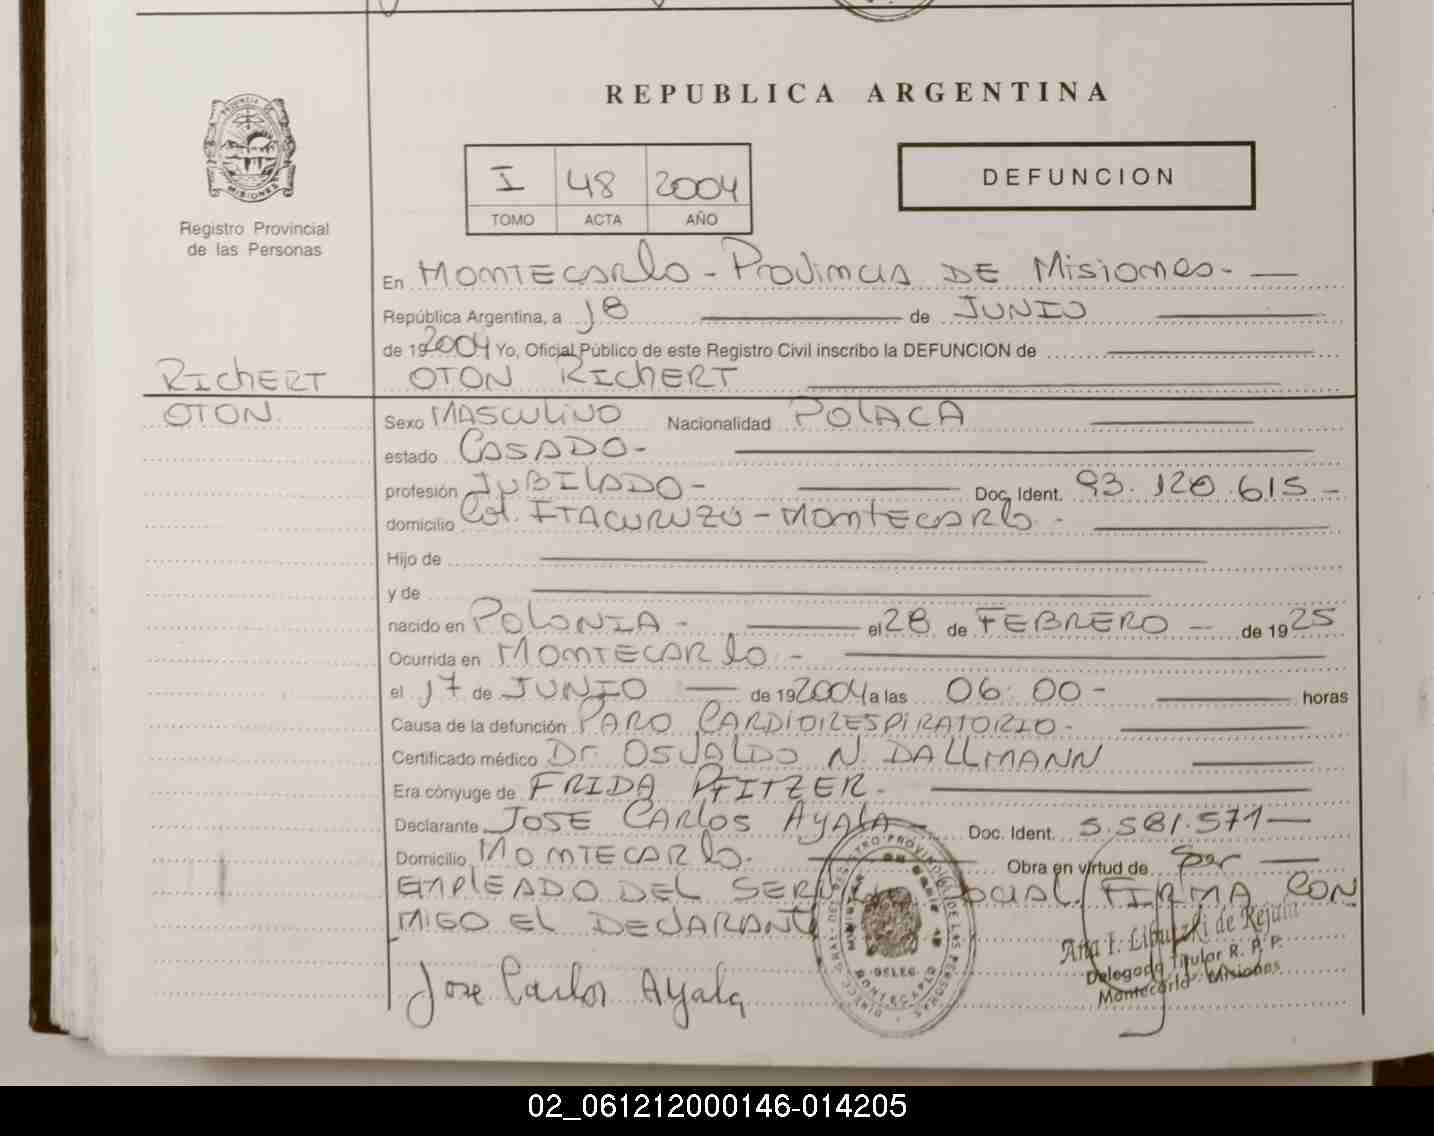 REPUBLICA ARGENTINA
PROVINCIA DE
MISIONES
Registro Provincial
de las Personas
I 48 2004
TOMO ACTA AÑO
DEFUNCION
En MONTECARLO - PROVINCIA DE MISIONES -
República Argentina, a 18 de JUNIO
de 192004 Yo, Oficial Público de este Registro Civil inscribo la DEFUNCION de
RICHERT OTON RICHERT
OTON.
Sexo MASCULINO Nacionalidad POLACA
estado CASADO -
profesión JUBILADO - Doc. Ident. 93.120.615 -
domicilio Col. ITACURUZU - MONTECARLO -
Hijo de
y de
nacido en POLONIA - el 28 de FEBRERO - de 1925
Ocurrida en MONTECARLO -
el 17 de JUNIO de 192004 a las 06:00 - horas
Causa de la defunción PARO CARDIORESPIRATORIO -
Certificado médico Dr. OSVALDO N. DALLMANN
Era cónyuge de FRIDA PFITZER -
Declarante JOSE CARLOS AYALA - Doc. Ident. 5.581.571
Domicilio MONTECARLO. Obra en virtud de ser
EMPLEADO DEL SERVICIO SOCIAL. FIRMA CON
MIGO EL DECLARANTE
Jose Carlos Ayala
DELEG.
MONTECARLO
Ana I. de Rejala
Delegada Titular R. P. P.
Montecarlo - Misiones
02_061212000146-014205